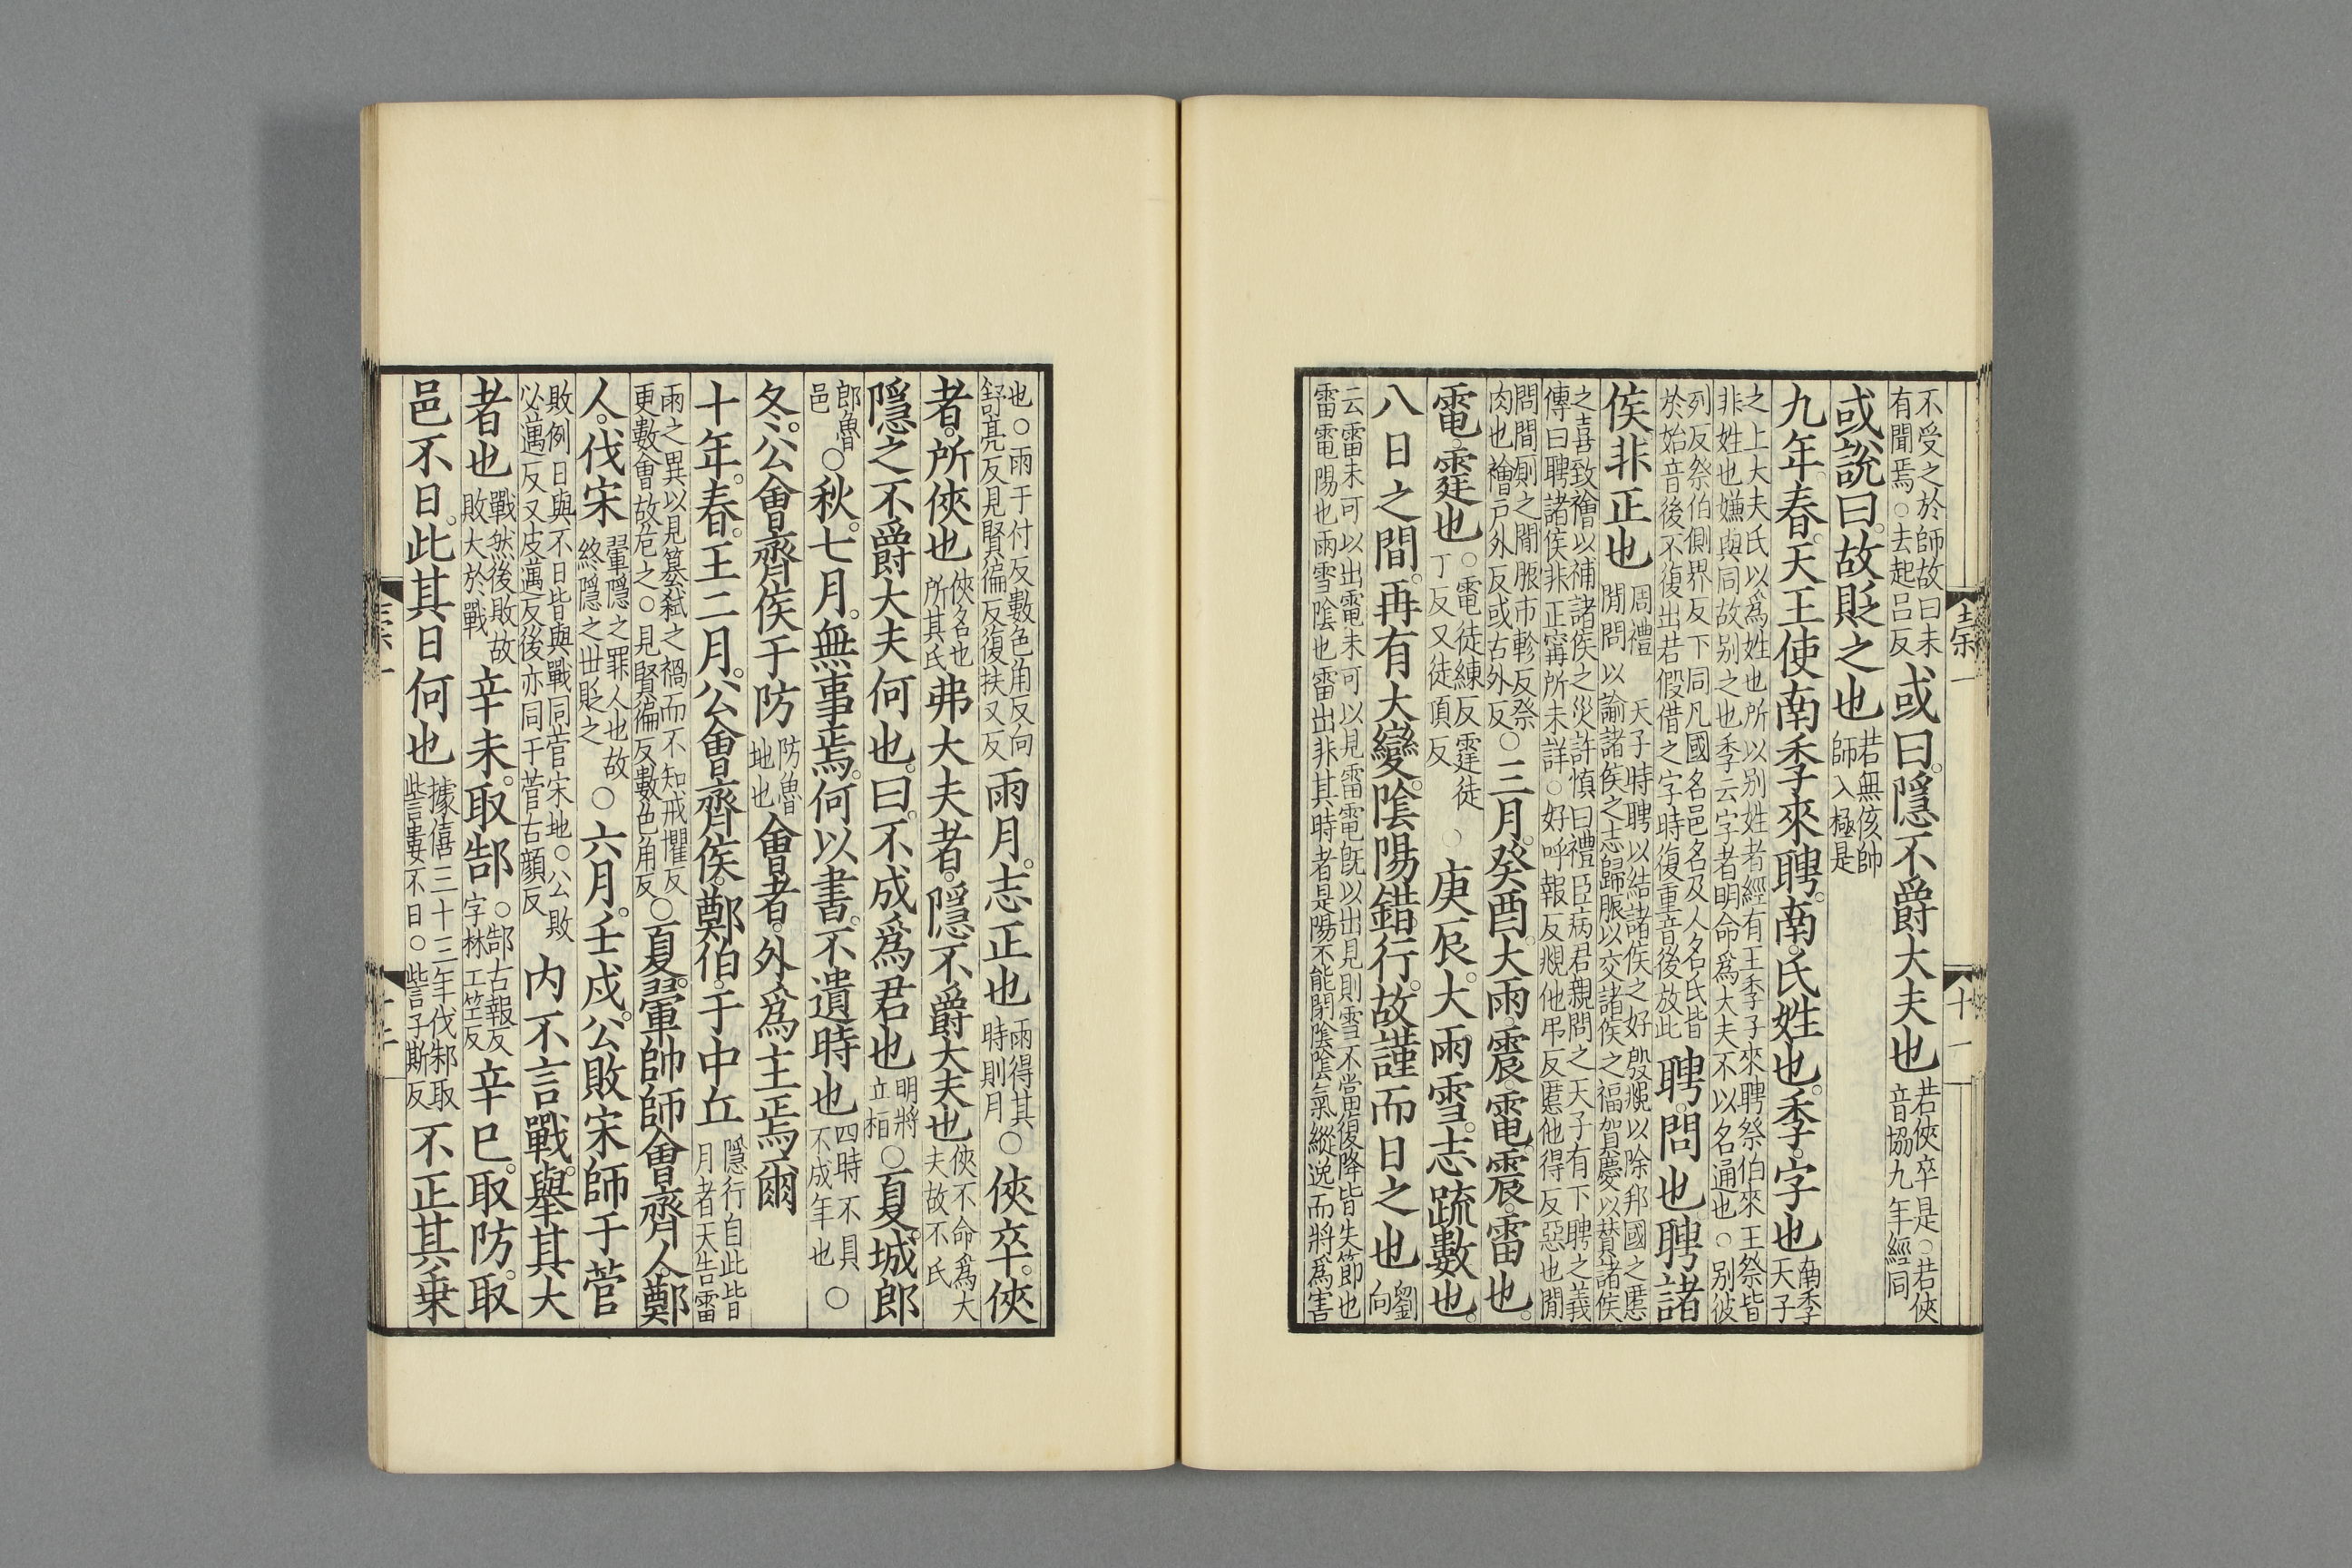 不受之於師故曰未
有聞焉○去起呂反
或曰隱不爵大夫也
若俠卒是○若俠
音協九年經同
或說曰故貶之也
若無侅帥
師入極是
九年春天王使南季來聘南氏姓也季字也
南季
天子
之上大夫氏以爲姓也所以别姓者經有王季子來聘祭伯來王祭皆
非姓也嫌與同故别之也季云字者明命爲大夫不以名通也○别彼
列反祭伯側界反下同凡國名邑名及人名氏皆
於始音後不復出若假借之字時復重音後放此
聘問也聘諸
侯非正也
周禮天子時聘以結諸侯之好殷覜以除邦國之慝
閒問以諭諸侯之志歸脤以交諸侯之福賀慶以賛諸侯
之喜致禬以補諸侯之災許慎曰禮臣病君親問之天子有下聘之義
傳曰聘諸侯非正寗所未詳○好呼報反覜他弔反慝他得反惡也閒
問間厠之間脤市軫反祭
肉也禬戸外反或古外反
○三月癸酉大雨震電震雷也
電霆也
○電徒練反霆徒
丁反又徒頂反
○庚辰大雨雪志疏數也
八日之間再有大變陰陽錯行故謹而日之也
劉
向
云雷未可以出電未可以見雷電既以出見則雪不當復降皆失節也
雷電陽也雨雪陰也雷出非其時者是陽不能閉陰陰氣縱逸而將爲害
壴宗一
十一
也○雨于付反數色角反向
舒亮反見賢徧反復扶又反
雨月志正也
雨得其
時則月
○俠卒俠
者所俠也
俠名也
所其氏
弗大夫者隱不爵大夫也
俠不命爲大
夫故不氏
隱之不爵大夫何也曰不成爲君也
明將
立桓
○夏城郎
郎魯
邑
○秋七月無事焉何以書不遺時也
四時不具
不成年也
○
冬公會齊侯于防
防魯
地也
會者外爲主焉爾
十年春王二月公會齊侯鄭伯于中丘
隱行自此皆
月者天告雷
雨之異以見篡弑之禍而不知戒懼反
更數會故危之○見賢徧反數色角反
○夏翬帥師會齊人鄭
人伐宋
翬隱之罪人也故
終隱之世貶之
○六月壬戌公敗宋師于菅
敗例日與不日皆與戰同菅宋地○公敗
必邁反又皮邁反後亦同于菅古顏反
内不言戰舉其大
者也
戰然後敗故
敗大於戰
辛未取郜
○郜古報反
字林工竺反
辛巳取防取
邑不日此其日何也
據僖三十三年伐邾取
訾婁不日○訾子斯反
不正其乗